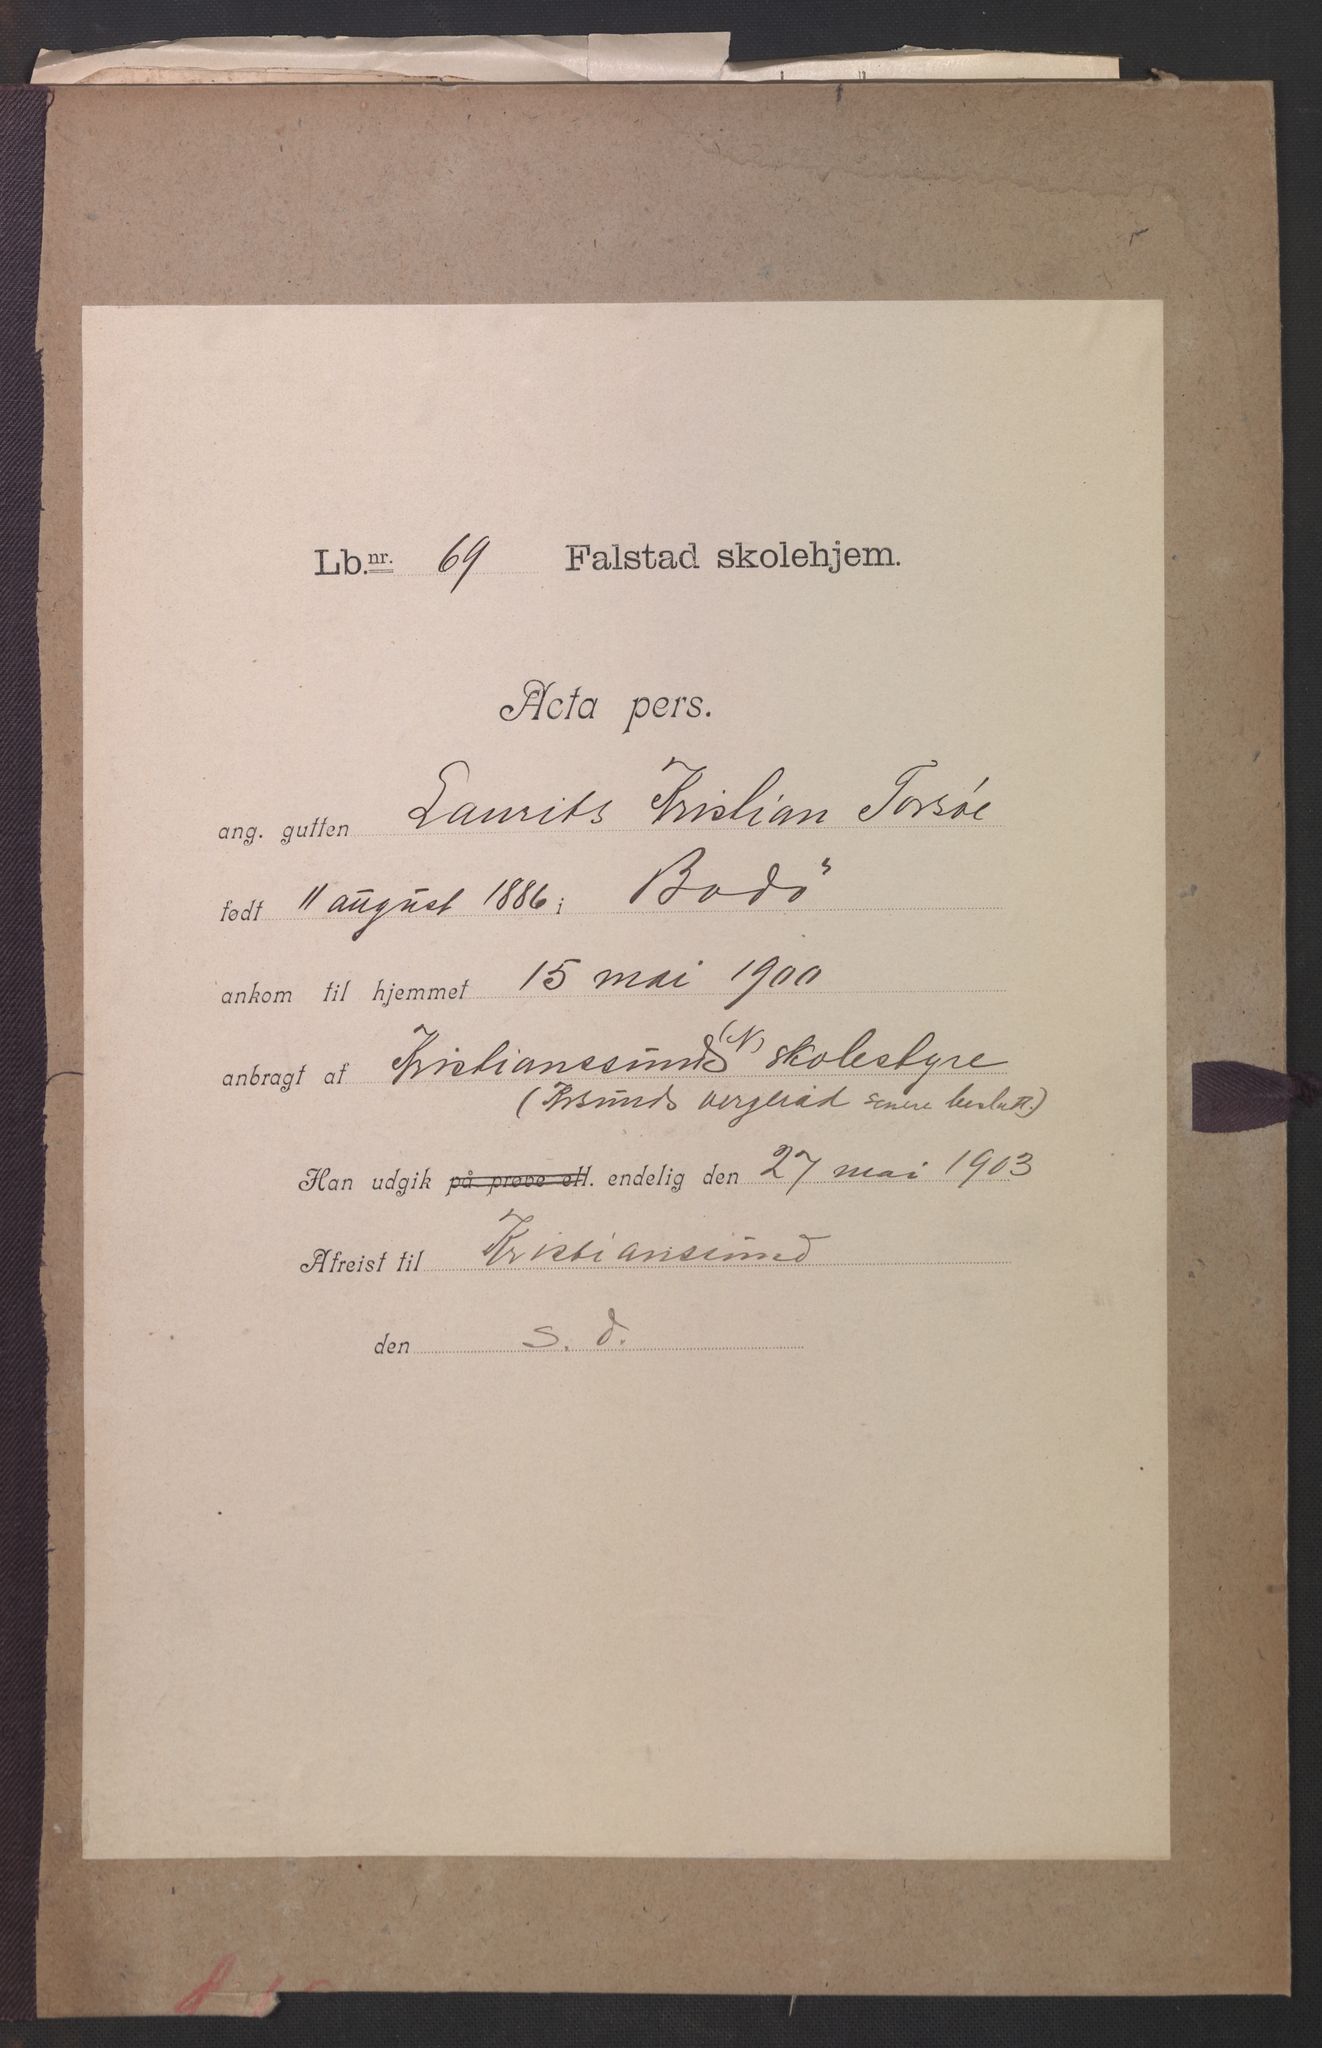 Lb.nr. 69 Falstad skolehjem.
Acta pers.
ang. gutten Laurits Kristian Torsøe
født 11 august 1886 i Bodø
ankom til hjemmet 15 mai 1900
anbragt af Kristianssunds (N) skolestyre
(Krsunds vergeråd senere beslutt.)
Han udgik på prøve ell. endelig den 27 mai 1903
Afreist til Kristianssund
den s. d.